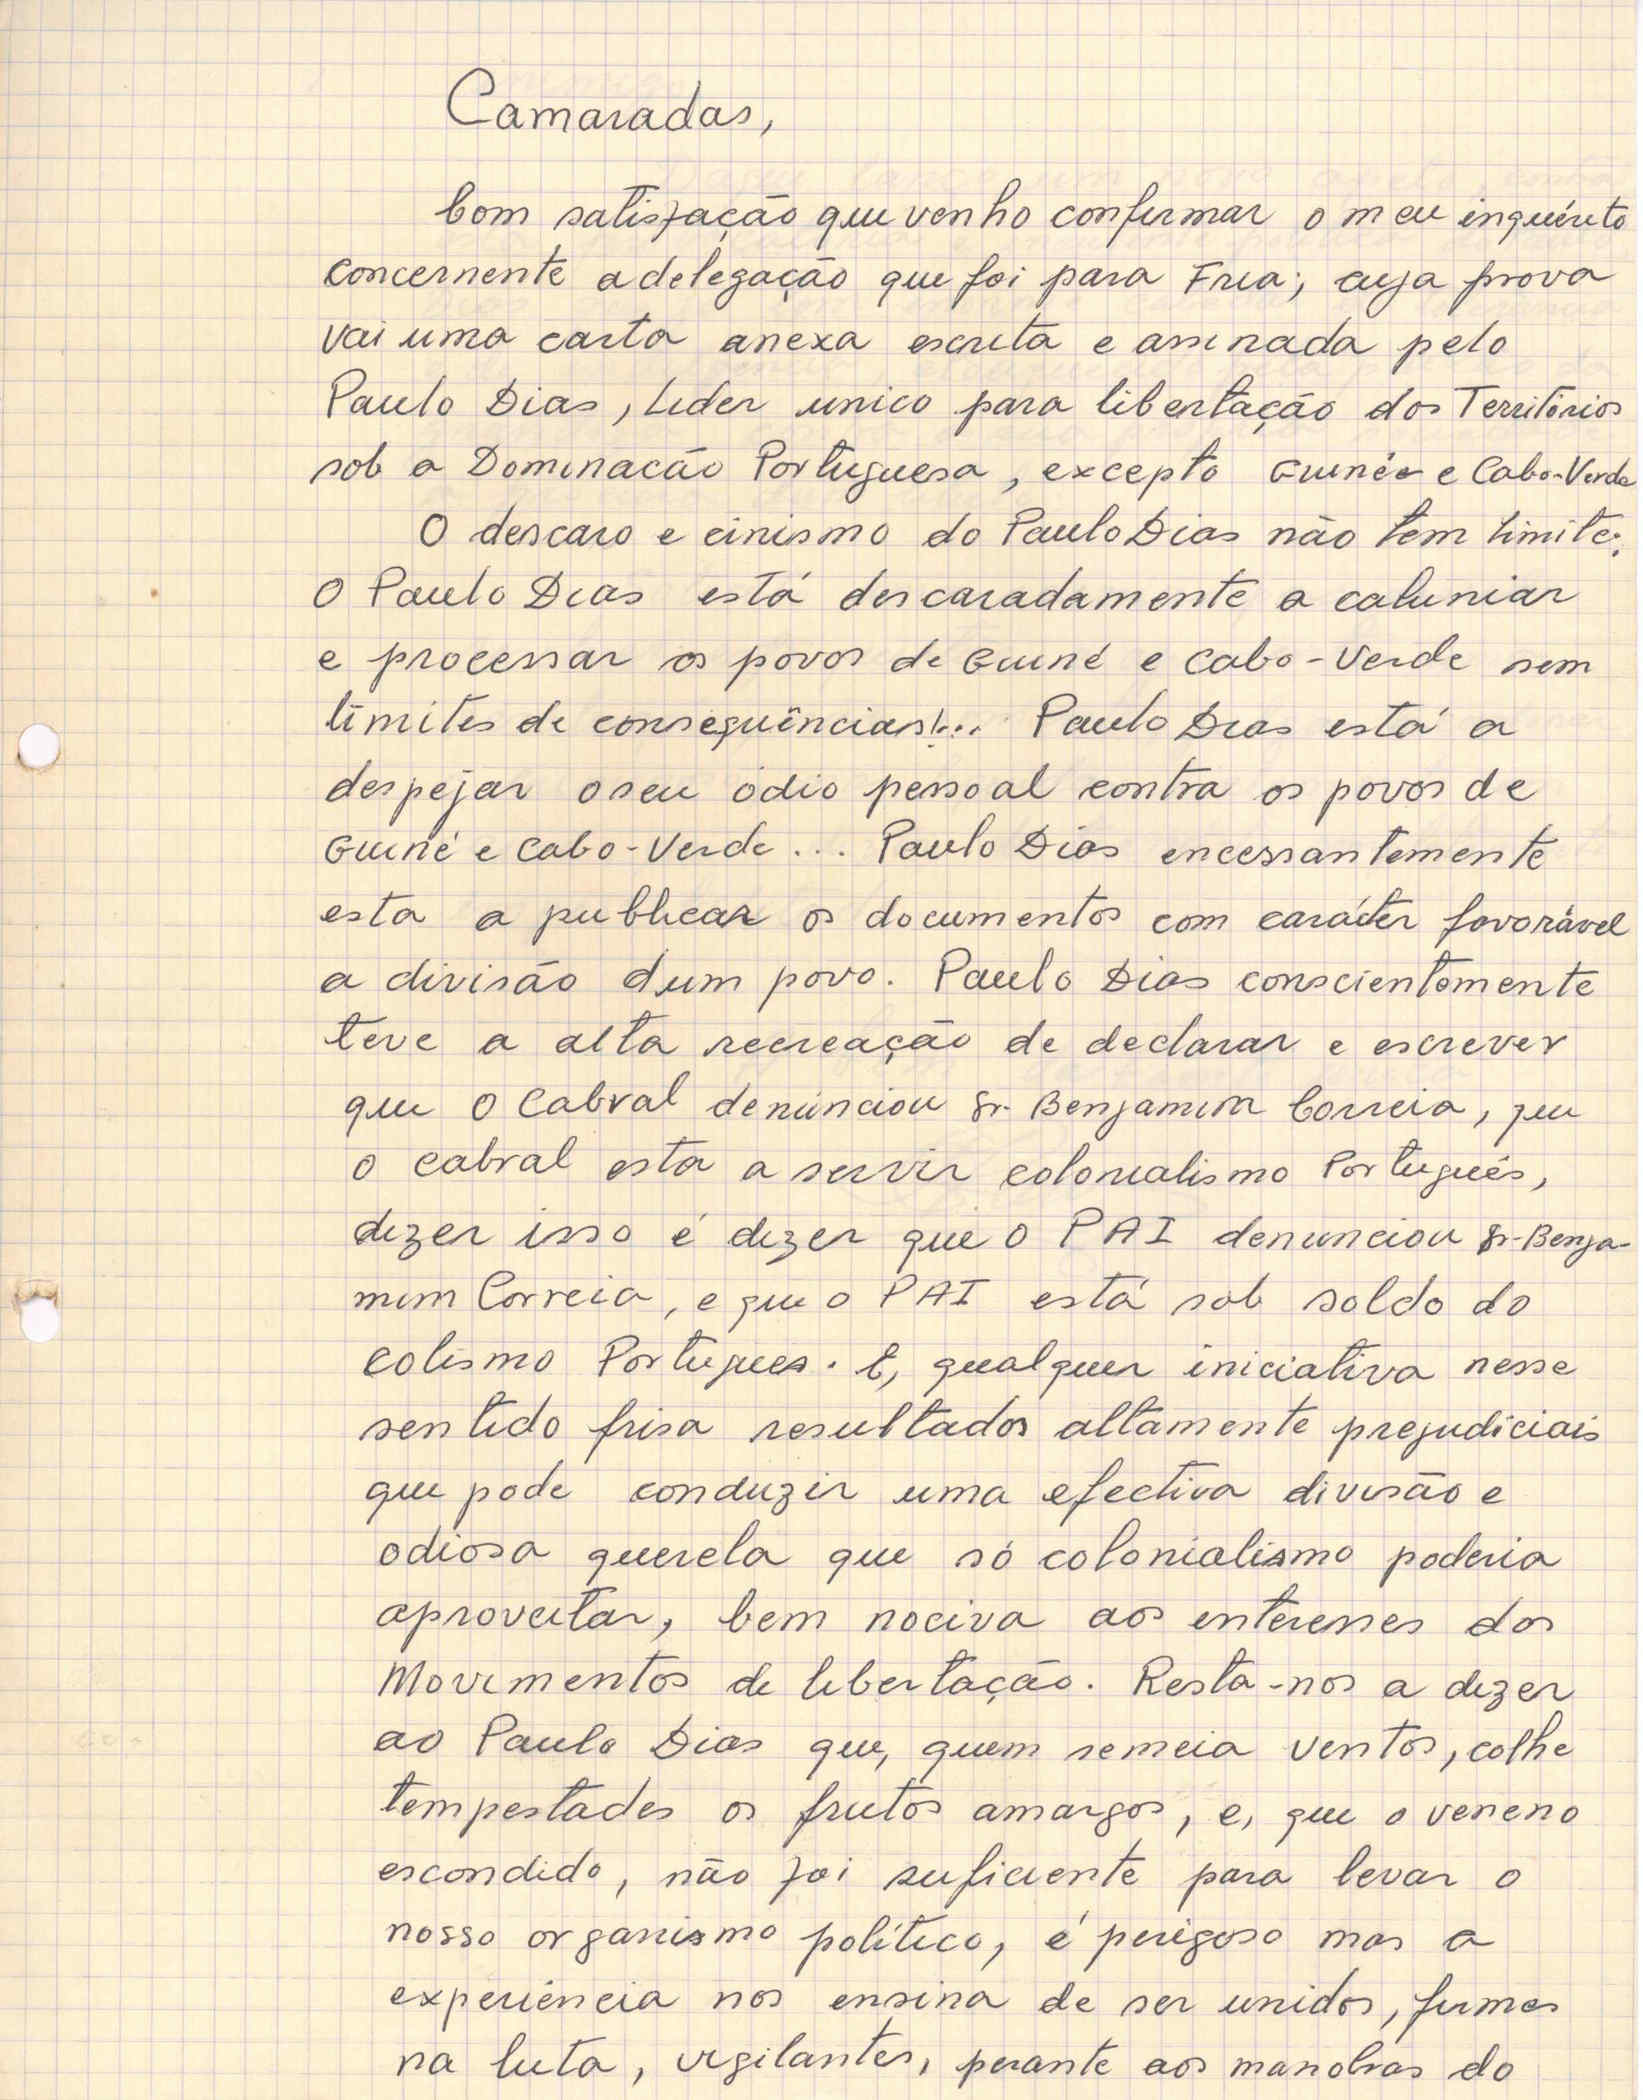 Camaradas,
Com satisfação que venho confirmar o meu inquérito
concernente a delegação que foi para Fria; cuja prova
vai uma carta anexa escrita e assinada pelo
Paulo Dias, Lider unico para libertação dos Territórios
sob a Dominacão Portuguesa, excepto Guiné e Cabo-Verde
O descaro e cinismo do Paulo Dias não tem limite;
O Paulo Dias está descaradamente a caluniar
e processar os povos de Guiné e Cabo-Verde sem
limites de consequências!... Paulo Dias está a
despejar o seu ódio pessoal contra os povos de
Guiné e Cabo-Verde... Paulo Dias encessantemente
esta a publicar os documentos com carácter favorável
a divisão dum povo. Paulo Dias conscientemente
teve a alta recreação de declarar e escrever
que o Cabral denúnciou Sr. Benjamim Correia, que
o Cabral esta a servir colonialismo Português,
dizer isso é dizer que o PAI denunciou Sr. Benja-
mim Correia, e que o PAI está sob soldo do
colismo Portugues. E, qualquer iniciativa nesse
sentido frisa resultados altamente prejudiciais
que pode conduzir uma efectiva divisão e
odiosa querela que só colonialismo poderia
aproveitar, bem nociva aos enteresses dos
Movimentos de libertação. Resta-nos a dizer
ao Paulo Dias que, quem semeia ventos, colhe
tempestades os frutos amargos, e, que o veneno
escondido, não foi suficiente para levar o
nosso organismo político, é perigoso mas a
experiência nos ensina de ser unidos, firmes
na luta, vigilantes, perante aos manobras do